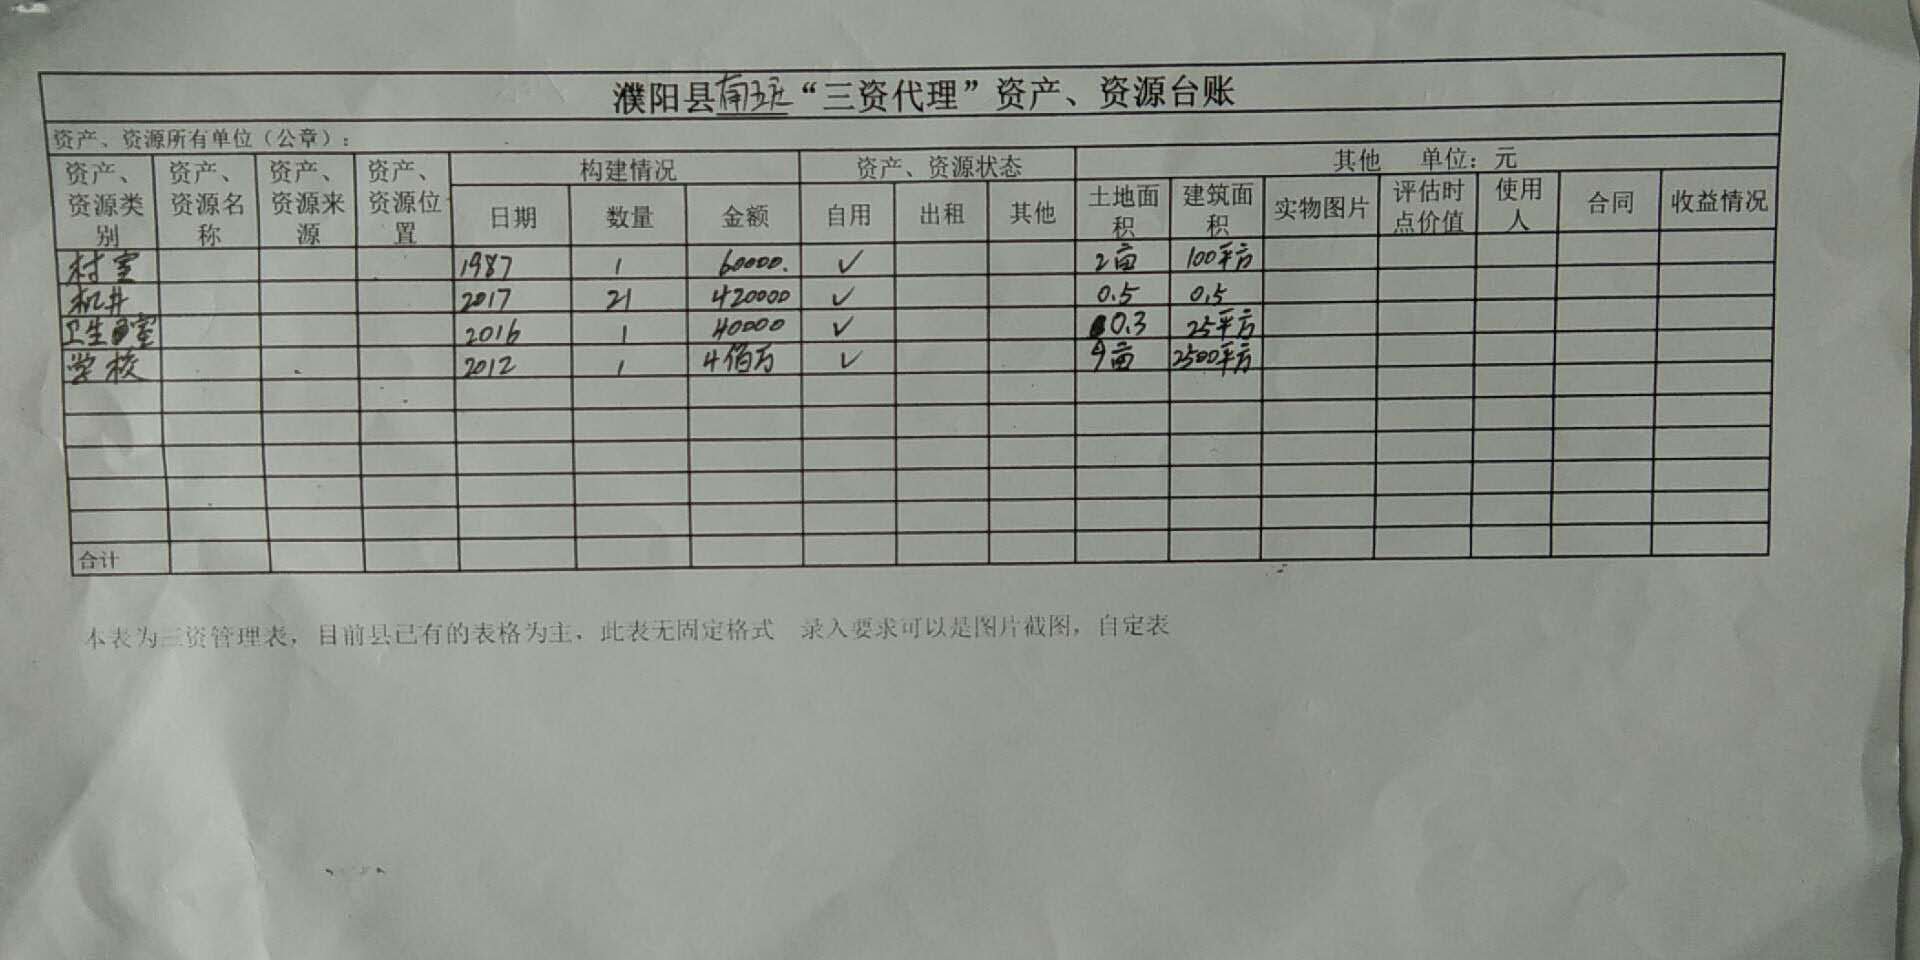 濮阳县南五庄“三资代理”资产、资源台账
资产、资源所有单位（公章）：
资产、资源类别 资产、资源名称 资产、资源来源 资产、资源位置 构建情况 资产、资源状态 其他 单位：元
日期 数量 金额 自用 出租 其他 土地面积 建筑面积 实物图片 评估时点价值 使用人 合同 收益情况
村室 1987 1 60000. ✓ 2亩 100平方
机井 2017 21 420000 ✓ 0.5 0.5
卫生室 2016 1 40000 ✓ 0.3 25平方
学校 2012 1 4佰万 ✓ 9亩 2500平方
合计
本表为三资管理表，目前县已有的表格为主，此表无固定格式 录入要求可以是图片截图，自定表